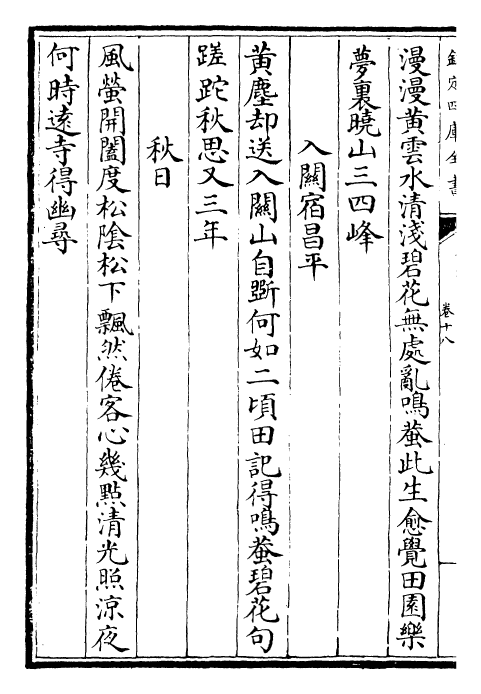 欽定四庫全書
卷十八
漫漫黃雲水清淺碧花無處亂鳴蛬此生愈覺田園樂
夢裏曉山三四峰
入關宿昌平
黃塵却送入關山自斷何如二頃田記得鳴蛬碧花句
蹉跎秋思又三年
秋日
風螢開闔度松陰松下飄然倦客心幾點清光照涼夜
何時遠寺得幽尋